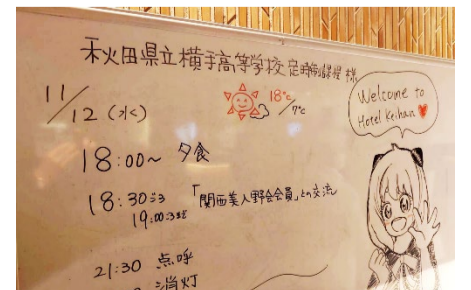 秋田県立横手高等学校定時制課程 様
11/12 (水)
18℃/7℃
Welcome to
Hotel Keihan
18:00～ 夕食
18:30ごろ 「関西美入野会会員」との交流
19:00ごろまで
21:30 点呼
消灯